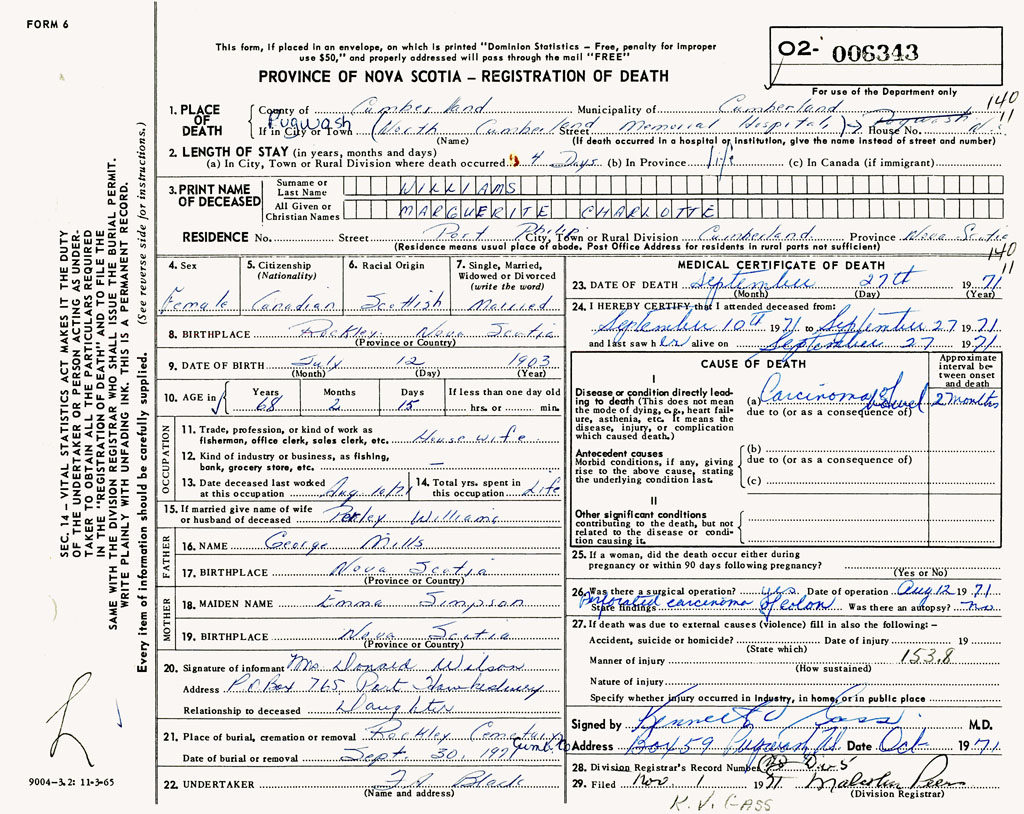 FORM 6
This form, if placed in an envelope, on which is printed "Dominion Statistics – Free, penalty for improper
use $50," and properly addressed will pass through the mail "FREE"
PROVINCE OF NOVA SCOTIA – REGISTRATION OF DEATH
02- 006343
For use of the Department only
140
11
1. PLACE OF DEATH
County of Cumberland Municipality of Cumberland
Pugwash
If in City or Town (North Cumberland Street Memorial Hospital) House No.
(Name) (If death occurred in a hospital or institution, give the name instead of street and number)
2. LENGTH OF STAY (in years, months and days)
(a) In City, Town or Rural Division where death occurred 4 Days (b) In Province life (c) In Canada (if immigrant)
3. PRINT NAME OF DECEASED
Surname or Last Name WILLIAMS
All Given or Christian Names MARGUERITE CHARLOTTE
RESIDENCE No. Street Port Philip City, Town or Rural Division Cumberland Province Nova Scotia
(Residence means usual place of abode. Post Office Address for residents in rural parts not sufficient)
140
11
4. Sex Female
5. Citizenship (Nationality) Canadian
6. Racial Origin Scottish
7. Single, Married, Widowed or Divorced (write the word) Married
8. BIRTHPLACE Rockley Nova Scotia
(Province or Country)
9. DATE OF BIRTH July 12 1903
(Month) (Day) (Year)
10. AGE in Years 68 Months 2 Days 15 If less than one day old hrs. or min.
OCCUPATION
11. Trade, profession or kind of work as
fisherman, office clerk, sales clerk, etc. Housewife
12. Kind of industry or business, as fishing,
bank, grocery store, etc. –
13. Date deceased last worked
at this occupation Aug 10/71
14. Total yrs. spent in
this occupation Life
15. If married give name of wife
or husband of deceased Perley Williams
FATHER
16. NAME George Mills
17. BIRTHPLACE Nova Scotia
(Province or Country)
MOTHER
18. MAIDEN NAME Emma Simpson
19. BIRTHPLACE Nova Scotia
(Province or Country)
20. Signature of informant Mrs Donald Wilson
Address P O Box 765 Port Hawkesbury
Relationship to deceased Daughter
21. Place of burial, cremation or removal Rockley Cemetary
Date of burial or removal Sept. 30, 1971
22. UNDERTAKER F.A. Black
(Name and address)
MEDICAL CERTIFICATE OF DEATH
23. DATE OF DEATH September 27th 1971
(Month) (Day) (Year)
24. I HEREBY CERTIFY that I attended deceased from:
September 10th 1971 to September 27 1971
and last saw her alive on September 27 1971
CAUSE OF DEATH
Approximate interval between onset and death
I
Disease or condition directly leading to death (This does not mean
the mode of dying, e.g., heart failure, asthenia, etc. It means the
disease, injury, or complication
which caused death.)
(a) Carcinoma of bowel 2 months
due to (or as a consequence of)
Antecedent causes
Morbid conditions, if any, giving
rise to the above cause, stating
the underlying condition last.
(b)
due to (or as a consequence of)
(c)
II
Other significant conditions
contributing to the death, but not
related to the disease or condition causing it.
25. If a woman, did the death occur either during
pregnancy or within 90 days following pregnancy?
(Yes or No)
26. Was there a surgical operation? yes. Date of operation Aug 12 1971
State findings Perforated carcinoma of colon Was there an autopsy? no
27. If death was due to external causes (violence) fill in also the following: –
Accident, suicide or homicide? Date of injury 19
(State which)
Manner of injury 153.8
(How sustained)
Nature of injury
Specify whether injury occurred in industry, in home, or in public place
Signed by Kenneth V Gass M.D.
Address Box 59 Pugwash NS Date Oct 1971
28. Division Registrar's Record Number
29. Filed Nov 1 1971 Malcolm
(Division Registrar)
K. V. GASS
SEC. 14 – VITAL STATISTICS ACT MAKES IT THE DUTY
OF THE UNDERTAKER OR PERSON ACTING AS UNDERTAKER TO OBTAIN ALL THE PARTICULARS REQUIRED
IN THE "REGISTRATION OF DEATH" AND TO FILE THE
SAME WITH THE DIVISION REGISTRAR WHO SHALL ISSUE THE BURIAL PERMIT.
WRITE PLAINLY WITH UNFADING INK. THIS IS A PERMANENT RECORD.
Every item of information should be carefully supplied. (See reverse side for instructions.)
9004–3.2: 11-3-65